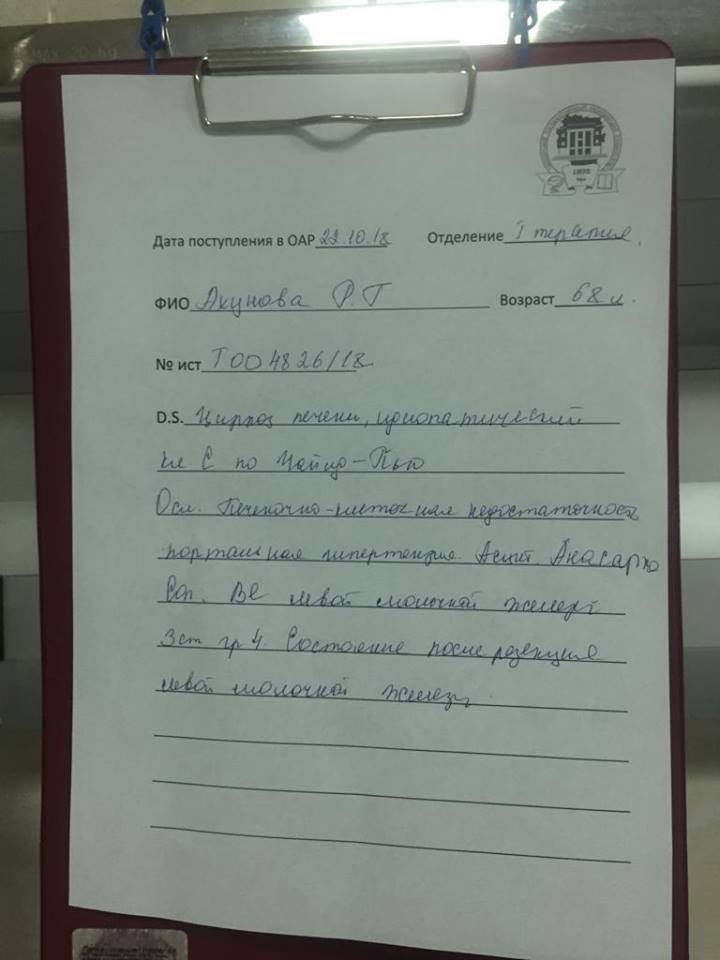 MAX 20 kg
1890
Дата поступления в ОАР 22.10.18 Отделение I терапия
ФИО Ахунова Р.Г Возраст 68 л.
№ ист Т004826/18
D.S. Цирроз печени, идиопатический
кл С по Чайлд-Пью
Осл. Печеночно-клеточная недостаточность
портальная гипертензия. Асцит. Анасарка
Соп. Bl левой молочной железы
3 ст гр 4. Состояние после резекции
левой молочной железы